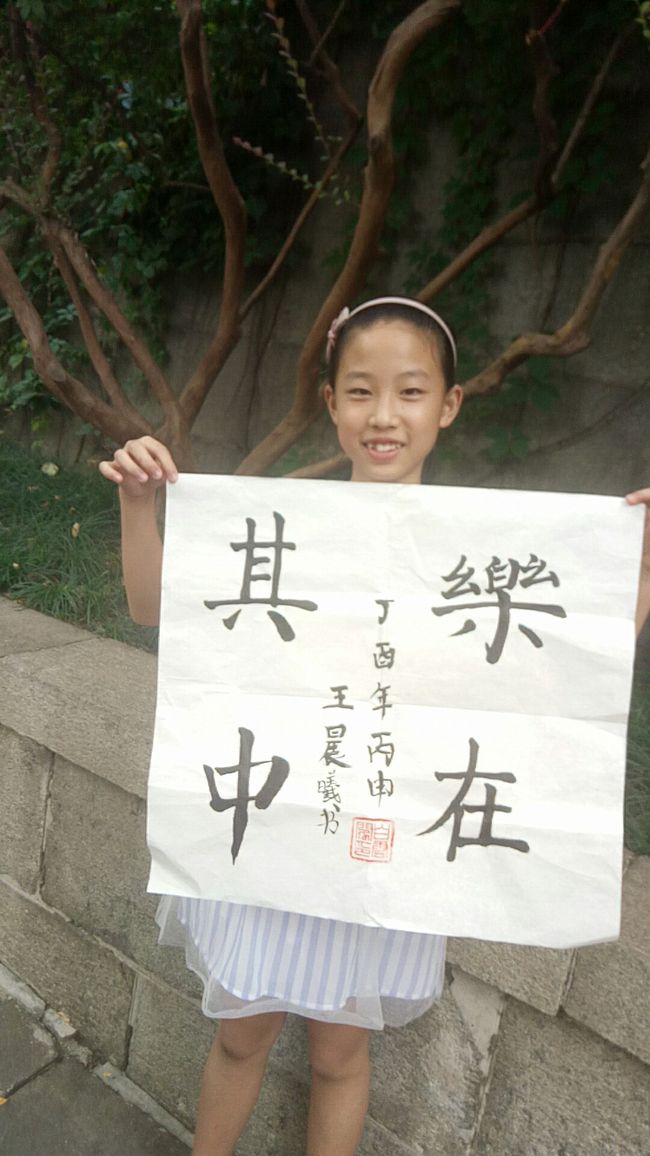 樂在
其中
丁酉年丙申
王晨曦书